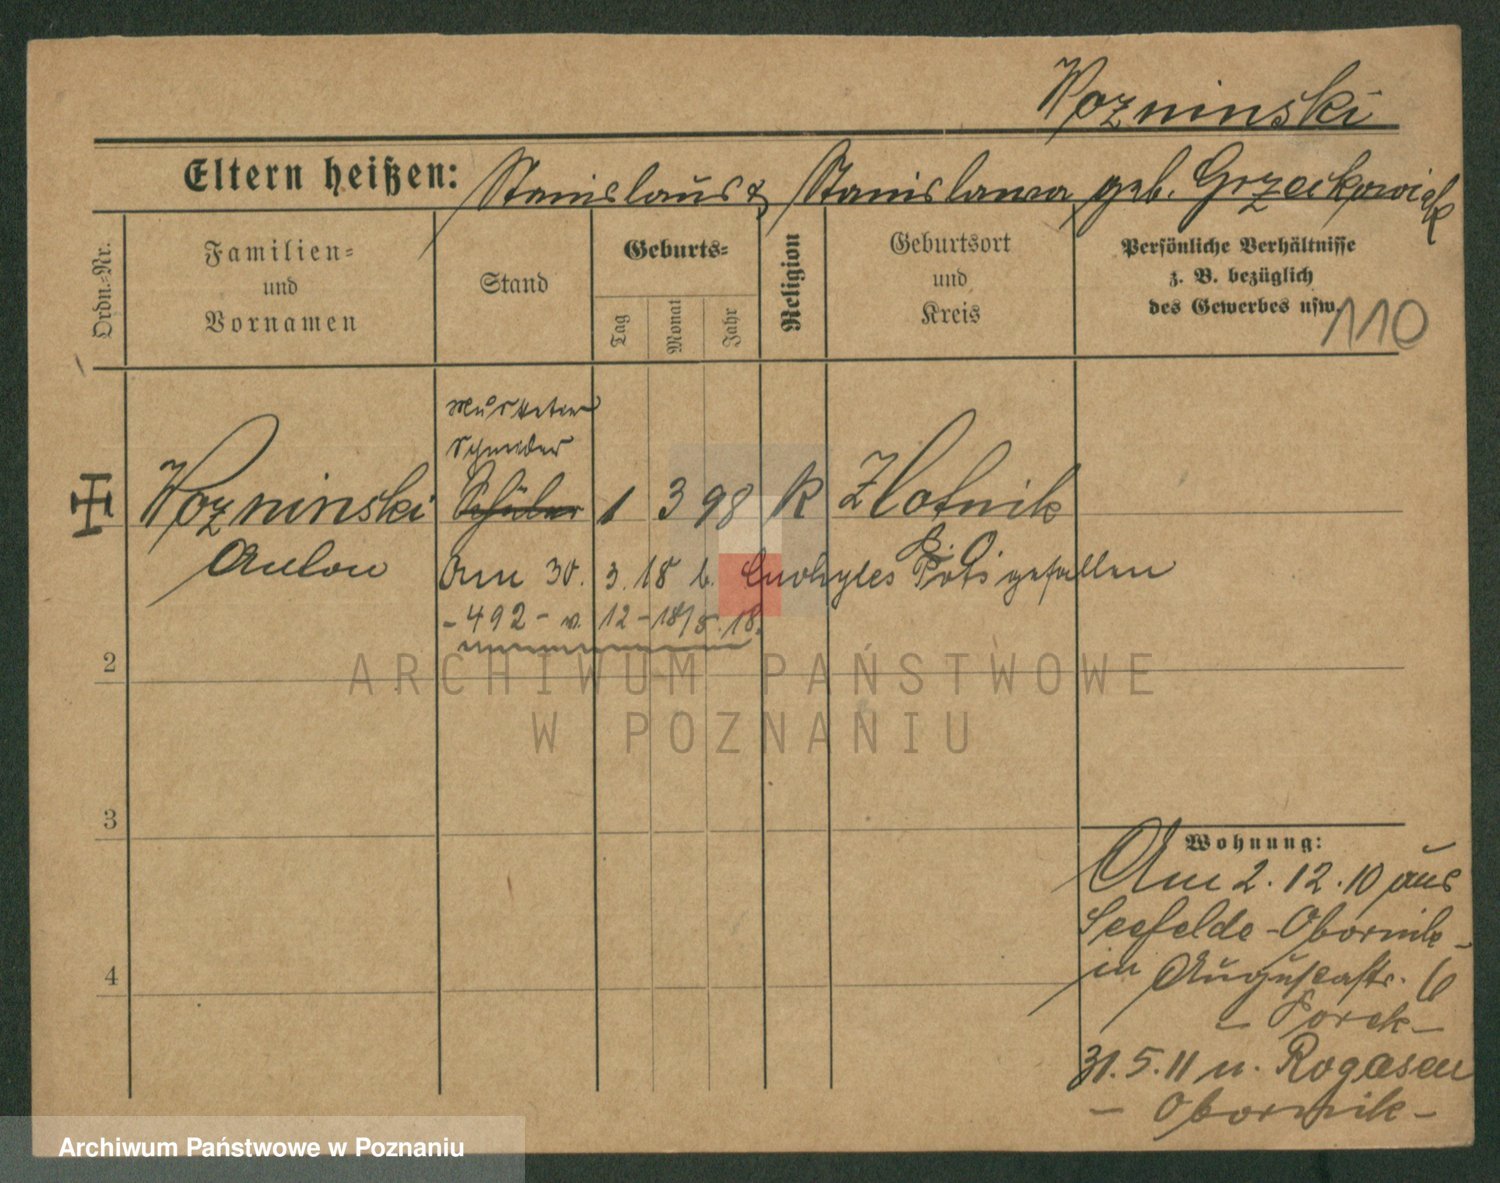 Wozninski
Eltern heißen: Stanislaus & Stanislawa geb. Grzeckowiak
Ordn.-Nr.
Familien-
und
Vornamen
Stand
Geburts-
Tag
Monat
Jahr
Religion
Geburtsort
und
Kreis
Persönliche Verhältnisse
z. B. bezüglich
des Gewerbes usw.
110
Musketier
Schneider
Wozninski Schüler 1 3 98 K Zlotnik
Anton
Am 30. 3. 18 b. gefallen
- 492 - v. 12 - 18/5. 18.
2
3
4
Wohnung:
Am 2. 12. 10 aus
Seefelde - Obornik -
in Augustastr. 6
31. 5. 11 n. Rogasen
- Obornik -
ARCHIWUM PAŃSTWOWE
W POZNANIU
Archiwum Państwowe w Poznaniu